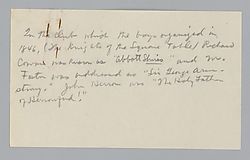 In the club which the boys organized in
1846, (The Knights of the Square Table) Richard
Cowan was known as "Abbott Shiras" and Mr.
Foster was addressed as "Sir George Arm-
strong." John Herron was "The Holy Father
of Hennonford!"